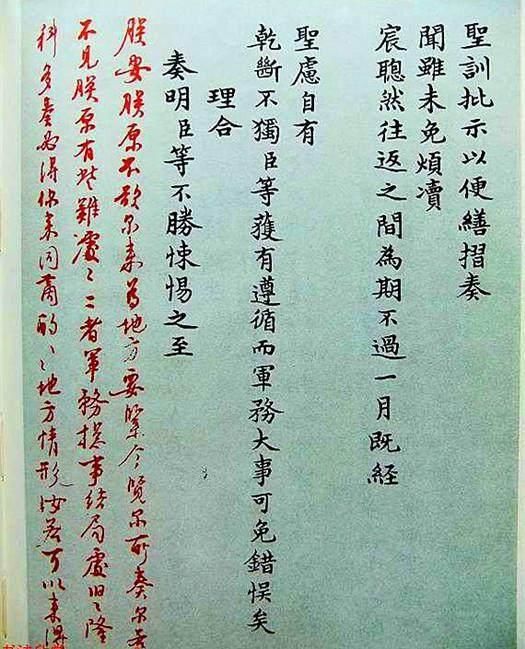 聖訓批示以便繕摺奏
聞雖未免煩瀆
宸聰然往返之間為期不過一月既経
聖慮自有
乾斷不獨臣等獲有遵循而軍務大事可免錯悞矣
理合
奏明臣等不勝悚惕之至
朕安朕原不欲尔来為地方要緊今覽尔所奏尔若
不見朕原有些難處〻〻者軍務摠事結局處舅〻隆
科多奏必得你来同商酌〻〻地方情形汝若可以来得